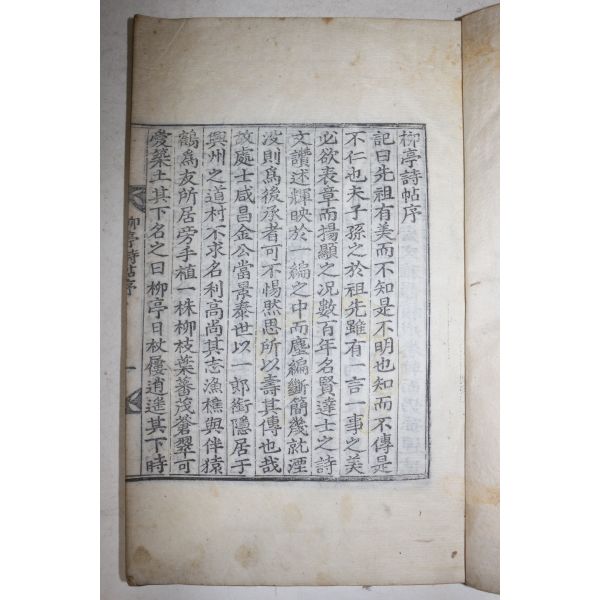 柳亭詩帖序
記曰先祖有美而不知是不明也知而不傳是
不仁也夫子孫之於祖先雖有一言一事之美
必欲表章而揚顯之况數百年名賢達士之詩
文讚述輝映於一編之中而塵編斷簡幾就湮
沒則爲後承者可不惕然思所以壽其傳也哉
故處士咸昌金公當景泰世以一郎銜隱居于
興州之道村不求名利高尚其志漁樵與伴猿
鶴爲友所居旁手植一株柳枝葉蕃茂蒼翠可
愛築土其下名之曰柳亭日杖屨逍遙其下時
柳亭詩帖序 一